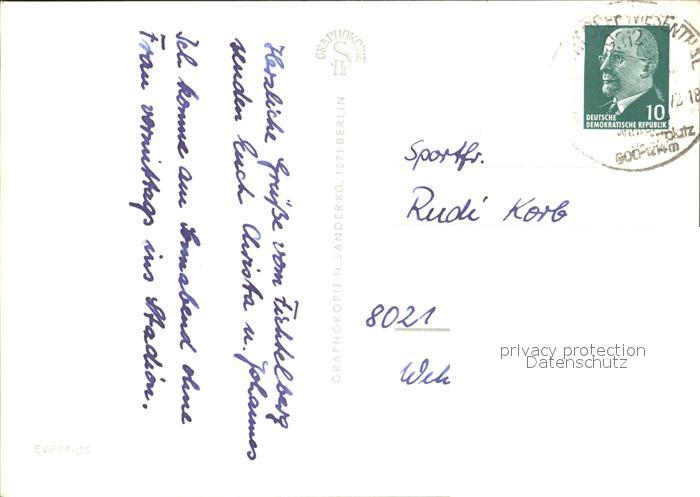 Herzliche Grüße vom Fichtelberg
senden Euch Christa u. Johannes
Ich komme am Sonnabend ohne
Frau vormittags ins Stadion.
EVP M -,25
GRAPHOKOPIE
GRAPHOKOPIE H. SANDER KG, 1071 BERLIN
WIESENTHAL
10
DEUTSCHE
DEMOKRATISCHE REPUBLIK
72-18
900-1214m
Sportfr.
Rudi Korb
8021
privacy protection
Datenschutz